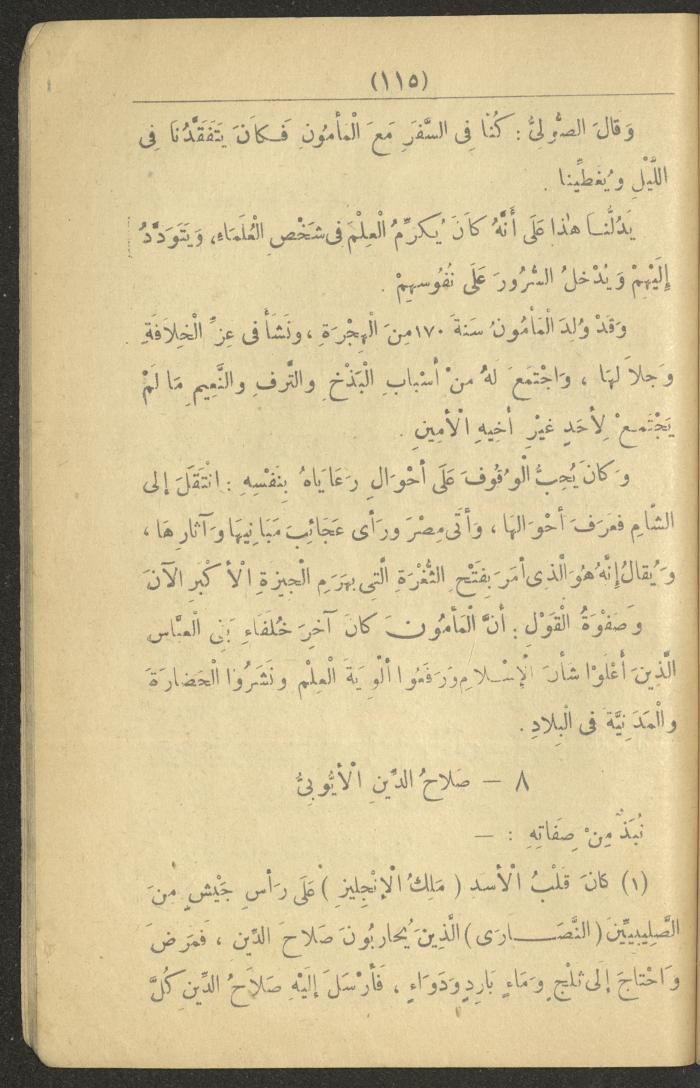 (١١٥)
وَقَالَ الصُّولِىُّ : كُنَّا فِى السَّفَرِ مَعَ الْمَأْمُونِ فَكَانَ يَتَفَقَّدُنَا فِى
اللَّيْلِ وَيُغَطِّينَا .
يَدُلُّنَا هٰذَا عَلَى أَنَّهُ كَانَ يُكَرِّمُ الْعِلْمَ فِى شَخْصِ الْعُلَمَاءِ، وَيَتَوَدَّدُ
إِلَيْهِمْ وَيُدْخِلُ السُّرُورَ عَلَى نُفُوسِهِمْ .
وَقَدْ وُلِدَ الْمَأْمُونُ سَنَةَ ١٧٠ مِنَ الْهِجْرَةِ ، وَنَشَأَ فى عِزِّ الْخِلَافَةِ
وَجَلَالِهَا ، وَاجْتَمَعَ لَهُ مِنْ أَسْبَابِ الْبَذْخِ وَالتَّرَفِ وَالنَّعِيمِ مَا لَمْ
يَجْتَمِعْ لِأَحَدٍ غَيْرِ أَخِيهِ الْأَمِينِ .
وَكَانَ يُحِبُّ الْوُقُوفَ عَلَى أَحْوَالِ رَعَايَاهُ بِنَفْسِهِ : انْتَقَلَ إلى
الشَّامِ فَعَرَفَ أَحْوَالَهَا ، وَأَتَى مِصْرَ وَرَأَى عَجَائِبَ مَبَانِيهَا وَآثَارِهَا ،
وَيُقَالُ إِنَّهُ هُوَ الَّذِى أَمَرَ بِفَتْحِ الثُّغْرَةِ الَّتِى بِهَرَمِ الْجِيزَةِ الْأَكْبَرِ الآنَ
وَصَفْوَةُ الْقَوْلِ : أَنَّ الْمَأْمُونَ كَانَ آخِرَ خُلَفَاءِ بَنِى الْعَبَّاسِ
الَّذِينَ أَعْلَوْا شَأْنَ الْإِسْلَامِ وَرَفَعُوا أَلْوِيَةَ الْعِلْمِ وَنَشَرُوا الْحَضَارَةَ
وَالْمَدَنِيَّةَ فى الْبِلَادِ .
٨ — صَلَاحُ الدِّينِ الْأَيُّوبِىُّ
نُبَذٌ مِنْ صِفَاتِهِ : —
(١) كَانَ قَلْبُ الْأَسَدِ ( مَلِكُ الْإِنْجِلِيزِ ) عَلَى رَأْسِ جَيْشٍ مِنَ
الصَّلِيبِيِّينَ (النَّصَارَى) الَّذِينَ يُحَارِبُونَ صَلَاحَ الدِّينِ ، فَمَرِضَ
وَاحْتَاجَ إِلَى ثَلْجٍ وَمَاءٍ بَارِدٍ وَدَوَاءٍ ، فَأَرْسَلَ إِلَيْهِ صَلَاحُ الدِّينِ كُلَّ